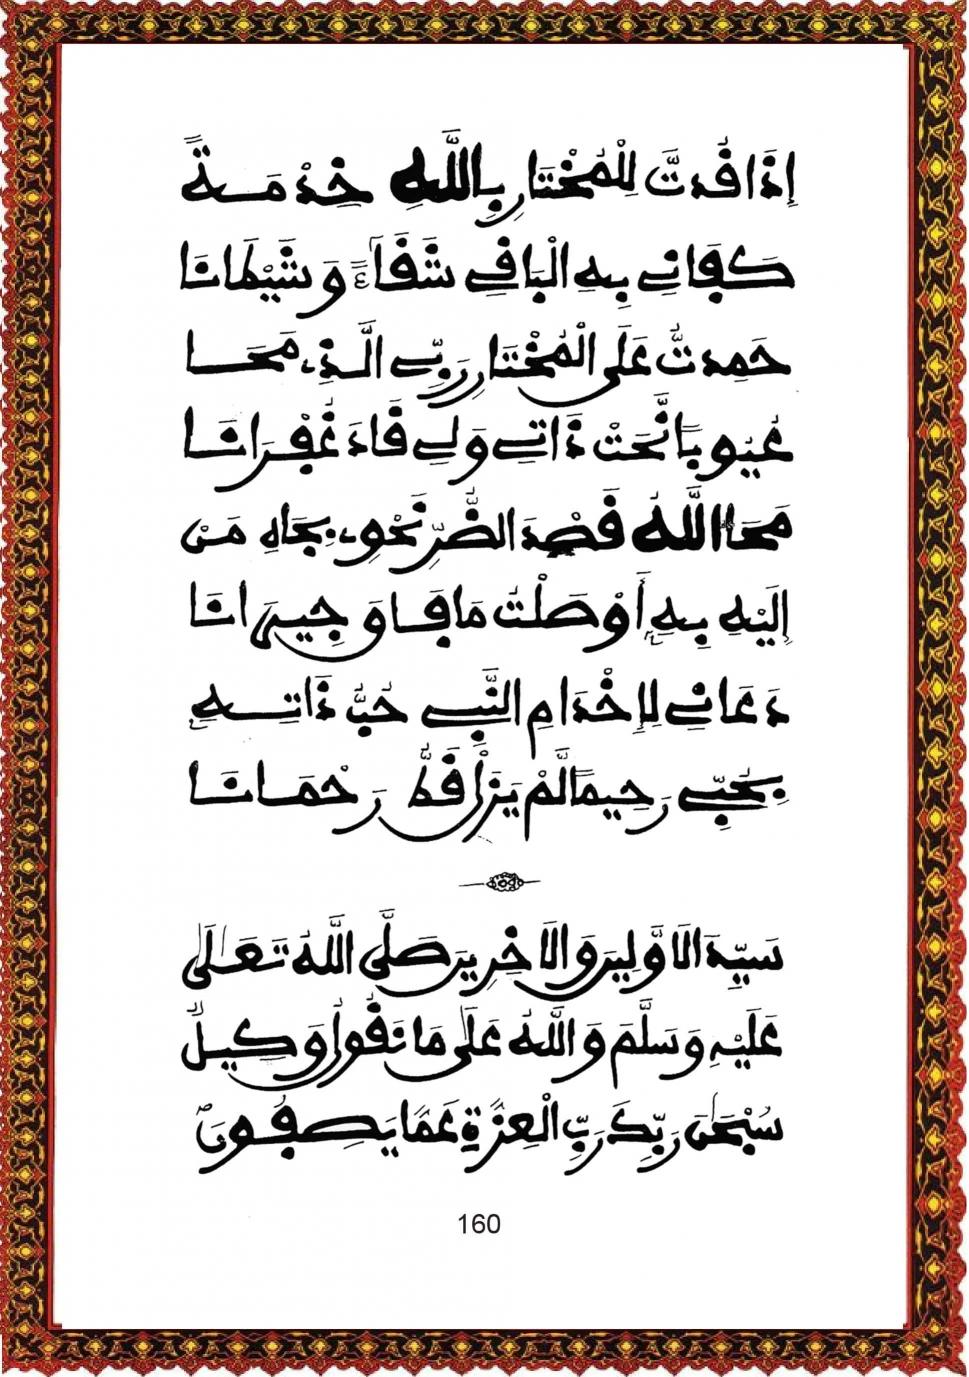 إِذَا قُدتُّ لِلْمُخْتَارِ بِاللَّهِ خِدْمَةً
كَفَانِي بِهِ الْبَاقِي شَقَاءً وَشَيْطَانَا
حَمِدتُّ عَلَى الْمُخْتَارِ رَبِّي الَّذِي مَحَا
عُيُوباً نَّحَتْ ذَاتِي وَلِي قَادَ غُفْرَانَا
مَحَا اللَّهُ قَصْدَ الضُّرِّ نَحْوِي بِجَاهِ مَنْ
إِلَيْهِ بِهِ أَوْصَلْتُ مَا فَاقَ جِيرَانَا
دَعَانِي لِإِخْدَامِ النَّبِي حُبُّ ذَاتِهِ
بِحُبِّي رَحِيماً لَّمْ يَزَلْ قَطُّ رَحْمَانَا
سَيِّدِ الَاوَّلِينَ وَالَاخِرِينَ صَلَّى اللَّهُ تَعَالَى
عَلَيْهِ وَسَلَّمَ وَاللَّهُ عَلَى مَا نَقُولُ وَكِيلٌ
سُبْحَنَ رَبِّكَ رَبِّ الْعِزَّةِ عَمَّا يَصِفُونَ
160